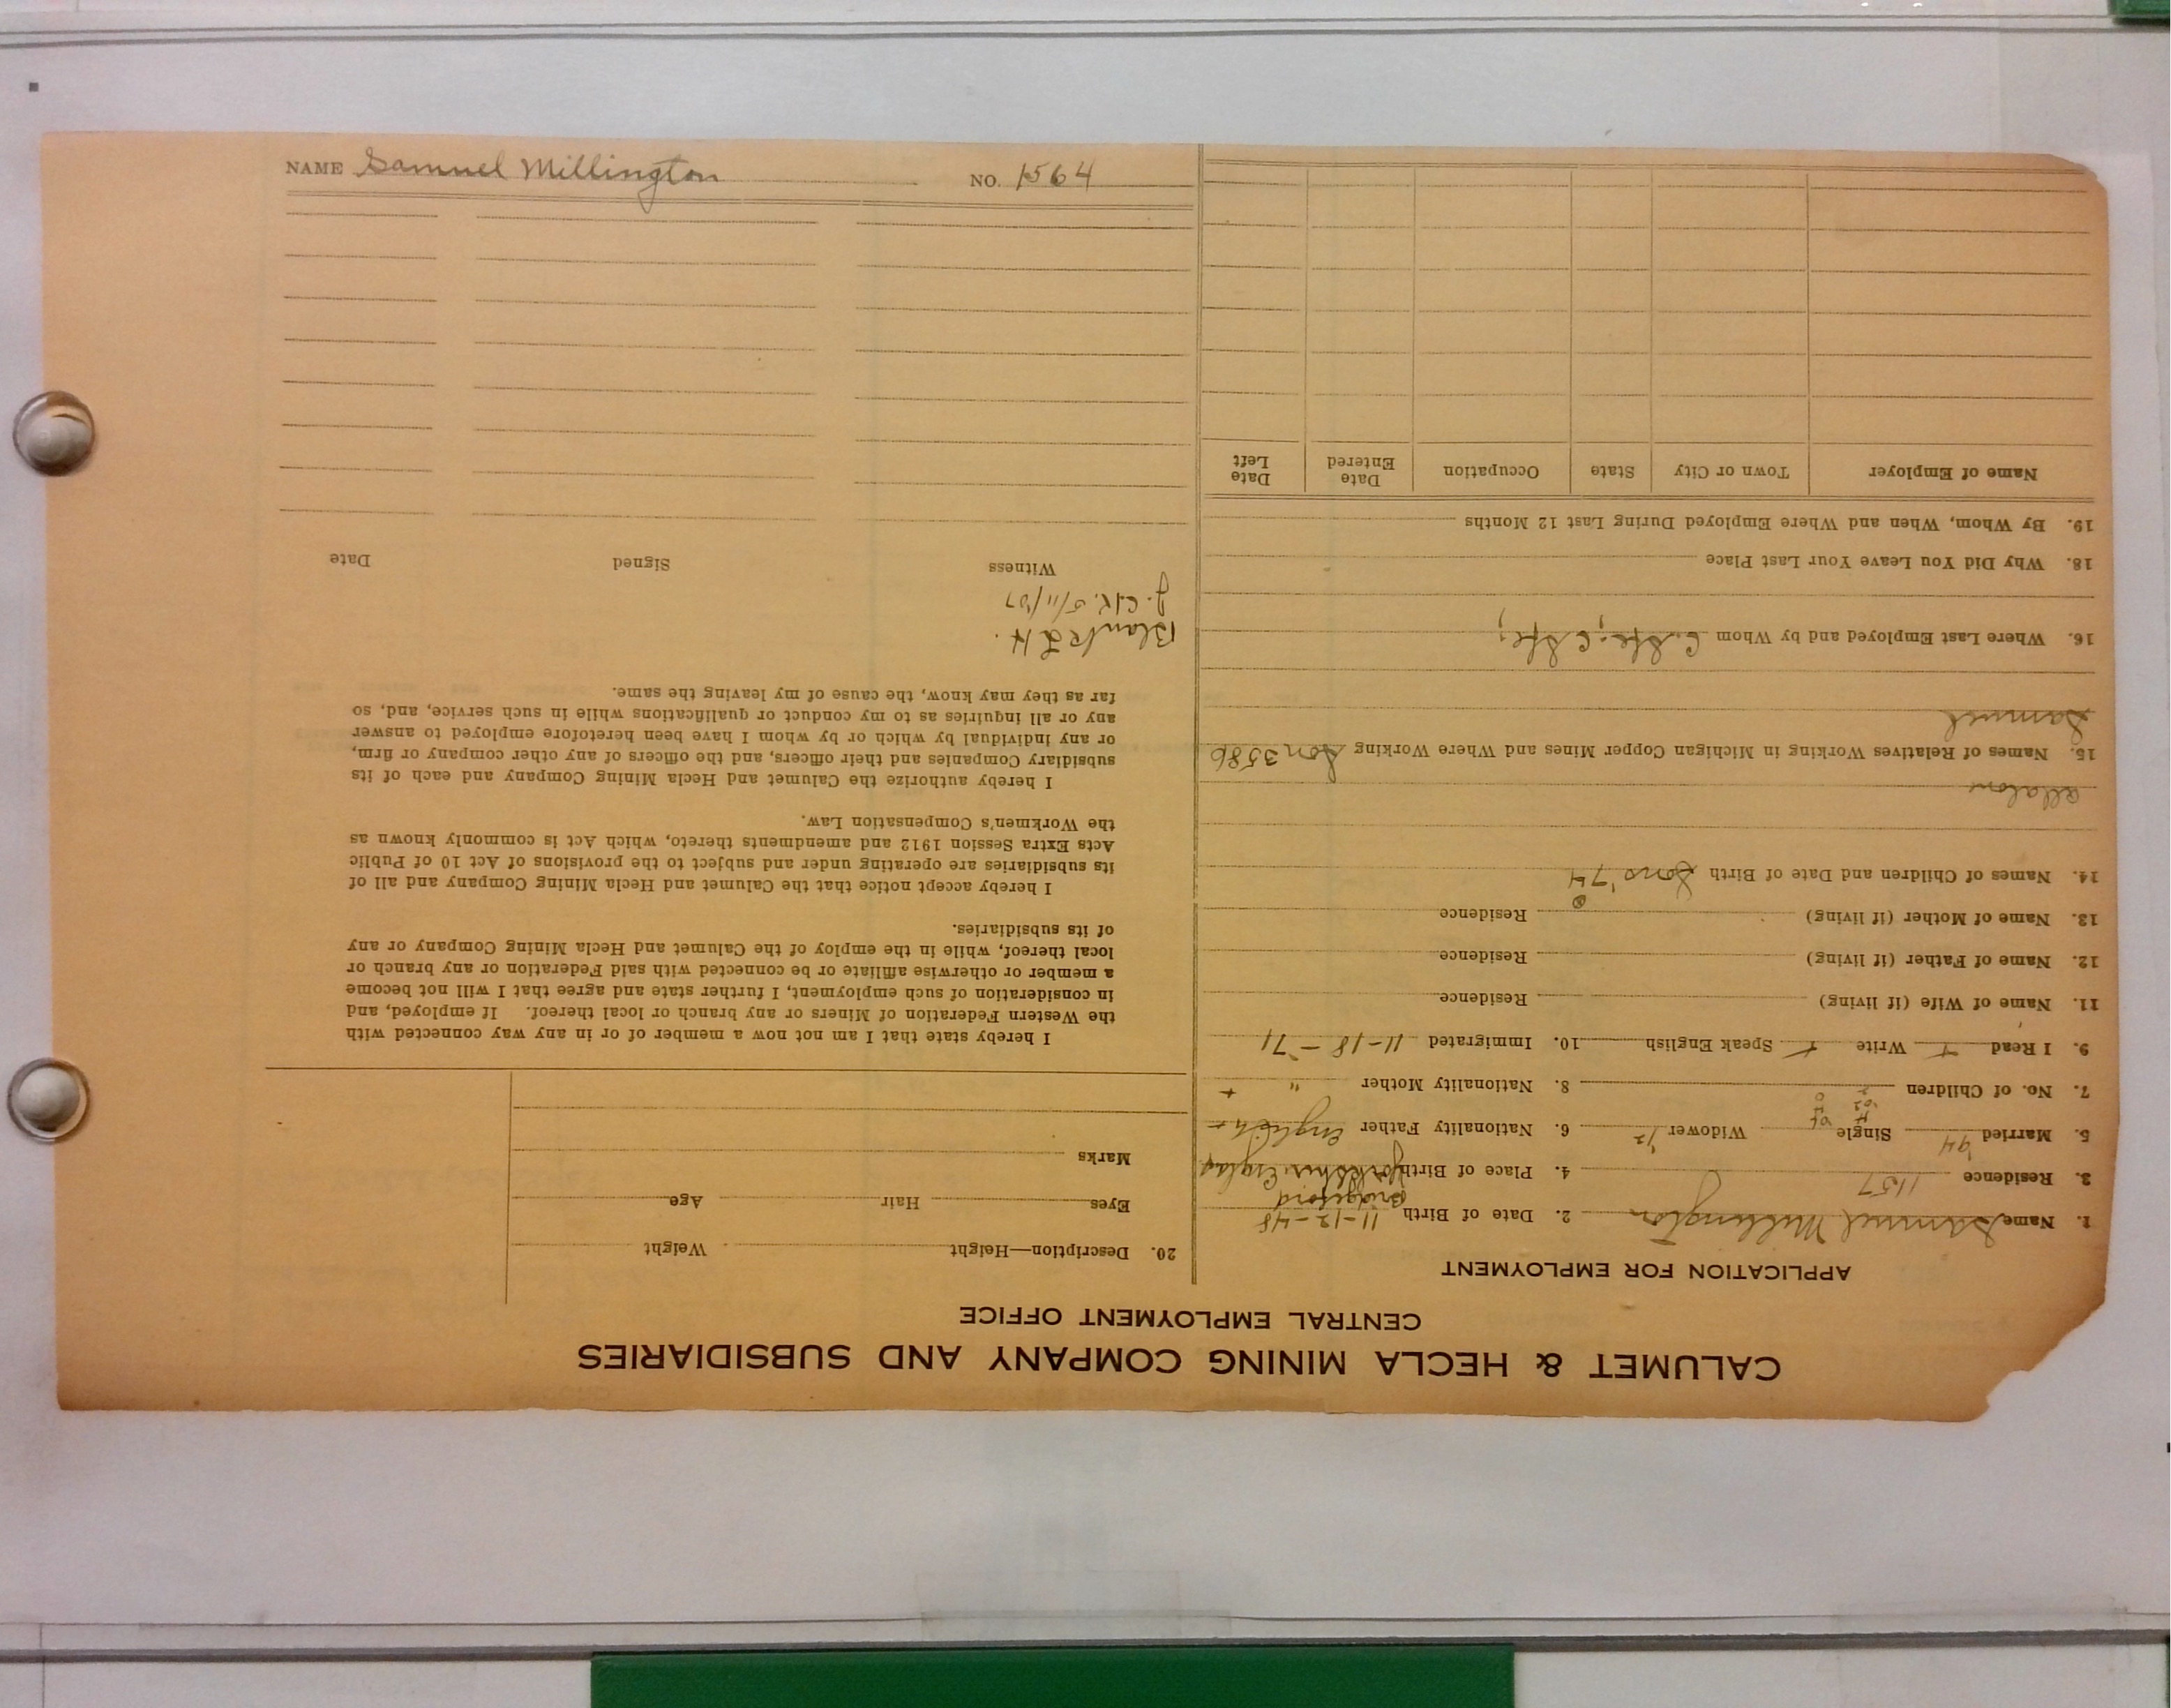 NAME Samuel Millington NO. 1564
CALUMET & HECLA MINING COMPANY AND SUBSIDIARIES
CENTRAL EMPLOYMENT OFFICE
APPLICATION FOR EMPLOYMENT
1. Name Samuel Millington 2. Date of Birth 11-12-48
3. Residence 1157 4. Place of Birth Yorkshire
5. Married '94 Single Widower '12 6. Nationality Father English
7. No. of Children 8. Nationality Mother "
9. I Read Write Speak English 10. Immigrated 11-18-71
11. Name of Wife (if living) Residence
12. Name of Father (if living) Residence
13. Name of Mother (if living) Residence
14. Names of Children and Date of Birth Sons '74
15. Names of Relatives Working in Michigan Copper Mines and Where Working Son 3586
Samuel
16. Where Last Employed and by Whom
18. Why Did You Leave Your Last Place
19. By Whom, When and Where Employed During Last 12 Months
Name of Employer Town or City State Occupation Date Entered Date Left
20. Description—Height Weight
Eyes Hair Age
Marks
I hereby state that I am not now a member of or in any way connected with
the Western Federation of Miners or any branch or local thereof. If employed, and
in consideration of such employment, I further state and agree that I will not become
a member or otherwise affiliate or be connected with said Federation or any branch or
local thereof, while in the employ of the Calumet and Hecla Mining Company or any
of its subsidiaries.
I hereby accept notice that the Calumet and Hecla Mining Company and all of
its subsidiaries are operating under and subject to the provisions of Act 10 of Public
Acts Extra Session 1912 and amendments thereto, which Act is commonly known as
the Workmen's Compensation Law.
I hereby authorize the Calumet and Hecla Mining Company and each of its
subsidiary Companies and their officers, and the officers of any other company or firm,
or any individual by which or by whom I have been heretofore employed to answer
any or all inquiries as to my conduct or qualifications while in such service, and, so
far as they may know, the cause of my leaving the same.
Blank
5/11/'07
Witness Signed Date